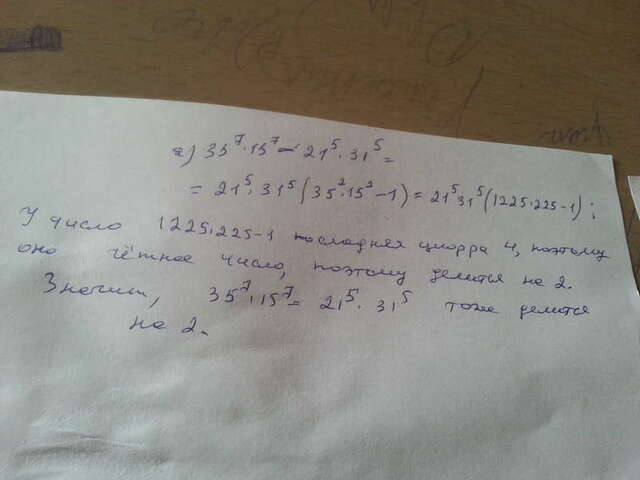 а) 35⁷·15⁷ – 21⁵·31⁵ =
= 21⁵·31⁵(35²·15²–1) = 21⁵·31⁵(1225·225–1);
У число 1225·225–1 последняя цифра 4, поэтому
оно чётное число, поэтому делится на 2.
Значит, 35⁷·15⁷ = 21⁵·31⁵ тоже делится
на 2.